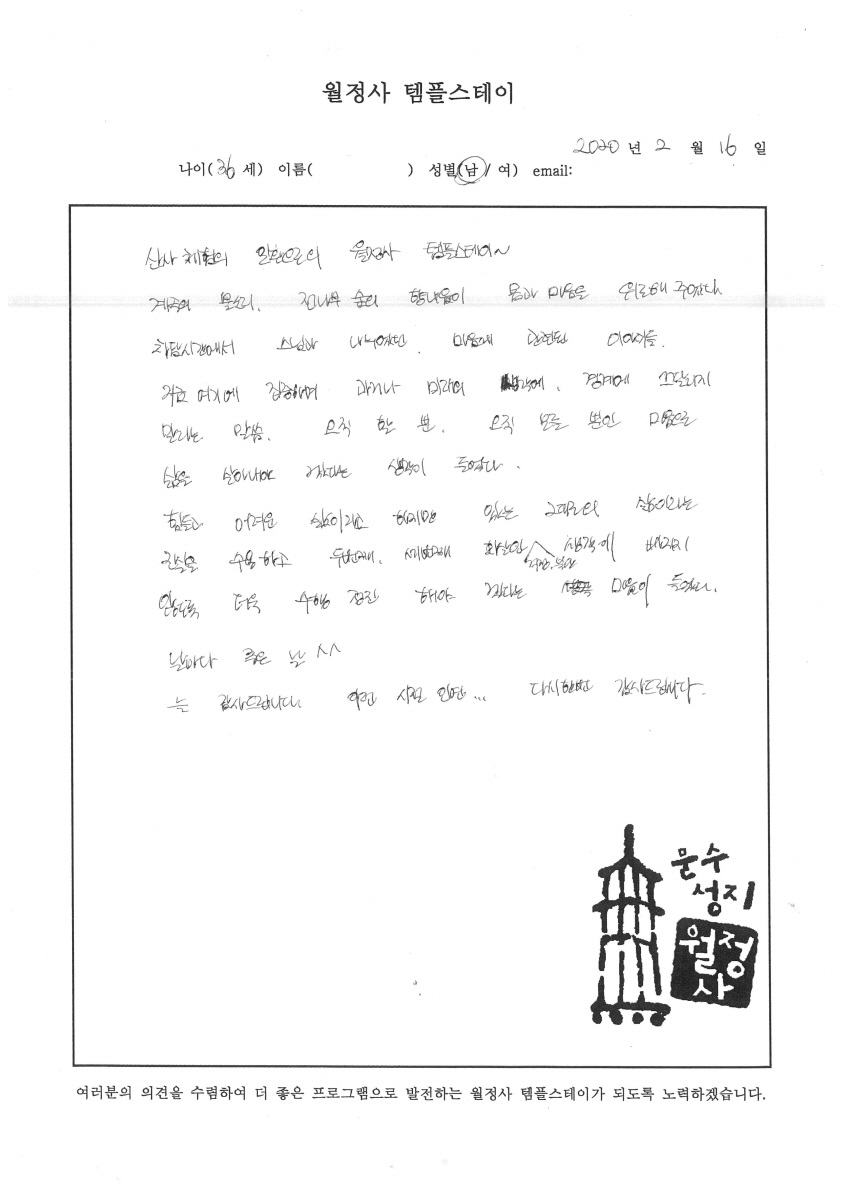 월정사 템플스테이
2020 년 2 월 16 일
나이(36 세) 이름( ) 성별(남/ 여) email:
산사 체험의 일환으로의 월정사 템플스테이~
계곡의 물소리. 전나무 숲의 향내음이 몸과 마음을 위로해 주었다.
차담시간에서 스님과 나누었던. 마음에 관련된 이야기들.
지금 여기에 집중하며 과거나 미래의 생각에. 경계에 끄달리지
말라는 말씀. 오직 할 뿐. 오직 모를 뿐인 마음으로
삶을 살아내야 겠다는 생각이 들었다.
힘들고 어려운 삶이라고 하지만 있는 그대로의 삶이라는
진실을 수용하고 두번째. 세번째 화살인 생각에 빠지지
않도록 더욱 수행 정진 해야 겠다는 마음이 들었다.
날마다 좋은 날 ^^
늘 감사드립니다. 인연... 다시한번 감사드립니다.
문수
성지
월정
사
여러분의 의견을 수렴하여 더 좋은 프로그램으로 발전하는 월정사 템플스테이가 되도록 노력하겠습니다.